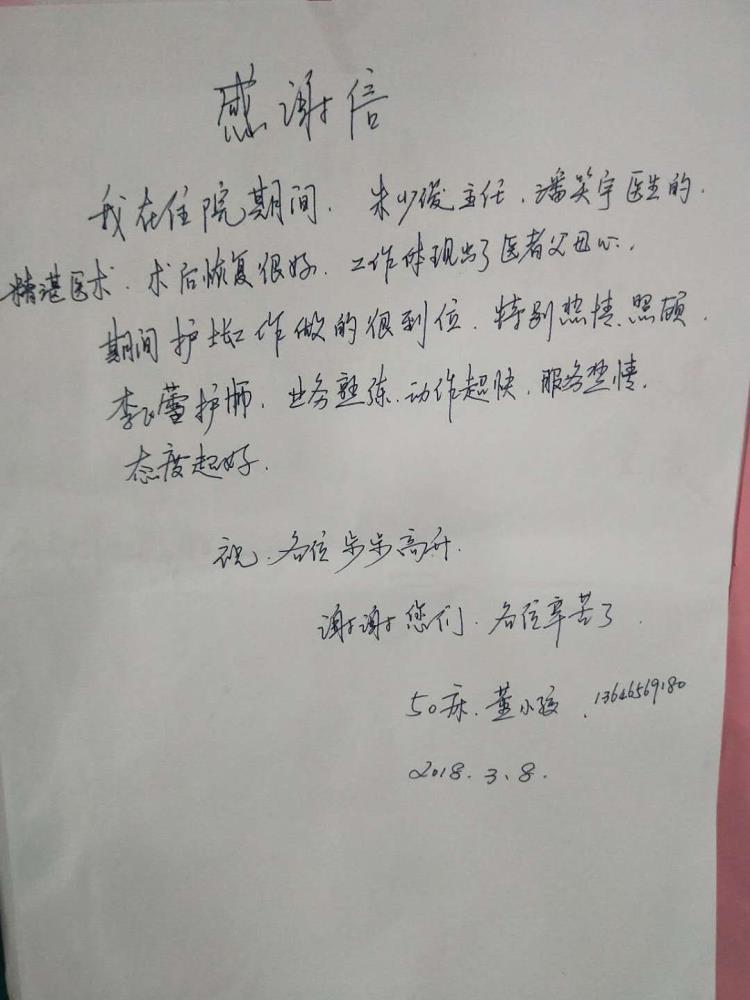 感谢信
我在住院期间，朱少俊主任，潘笑宇医生的，
精湛医术，术后恢复很好，工作体现出了医者父母心，
期间护士长工作做的很到位，特别热情、照顾，
李飞蕾护师，业务熟练，动作超快，服务热情，
态度超好，
祝、各位步步高升，
谢谢您们，各位辛苦了，
50床、董小孩，13646569180
2018.3.8.